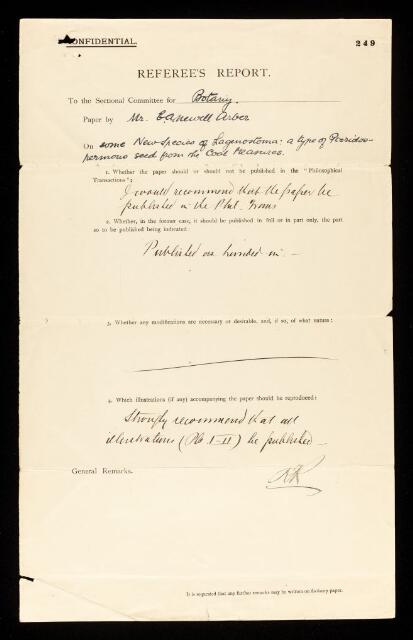 CONFIDENTIAL.
249
REFEREE'S REPORT.
To the Sectional Committee for Botany.
Paper by Mr. E A Newell Arber
On some New Species of Lagenostoma: a type of Pteridos-
permous seed from the Coal Measures.
1. Whether the paper should or should not be published in the "Philosophical
Transactions":
I would recommend that the paper be
published in the Phil. Trans
2. Whether, in the former case, it should be published in full or in part only, the part
so to be published being indicated:
Published as handed in. —
3. Whether any modifications are necessary or desirable, and, if so, of what nature:
4. Which illustrations (if any) accompanying the paper should be reproduced:
Strongly recommend that all
illustrations (Pls. I-II) be published —
General Remarks.
It is requested that any further remarks may be written on foolscap paper.